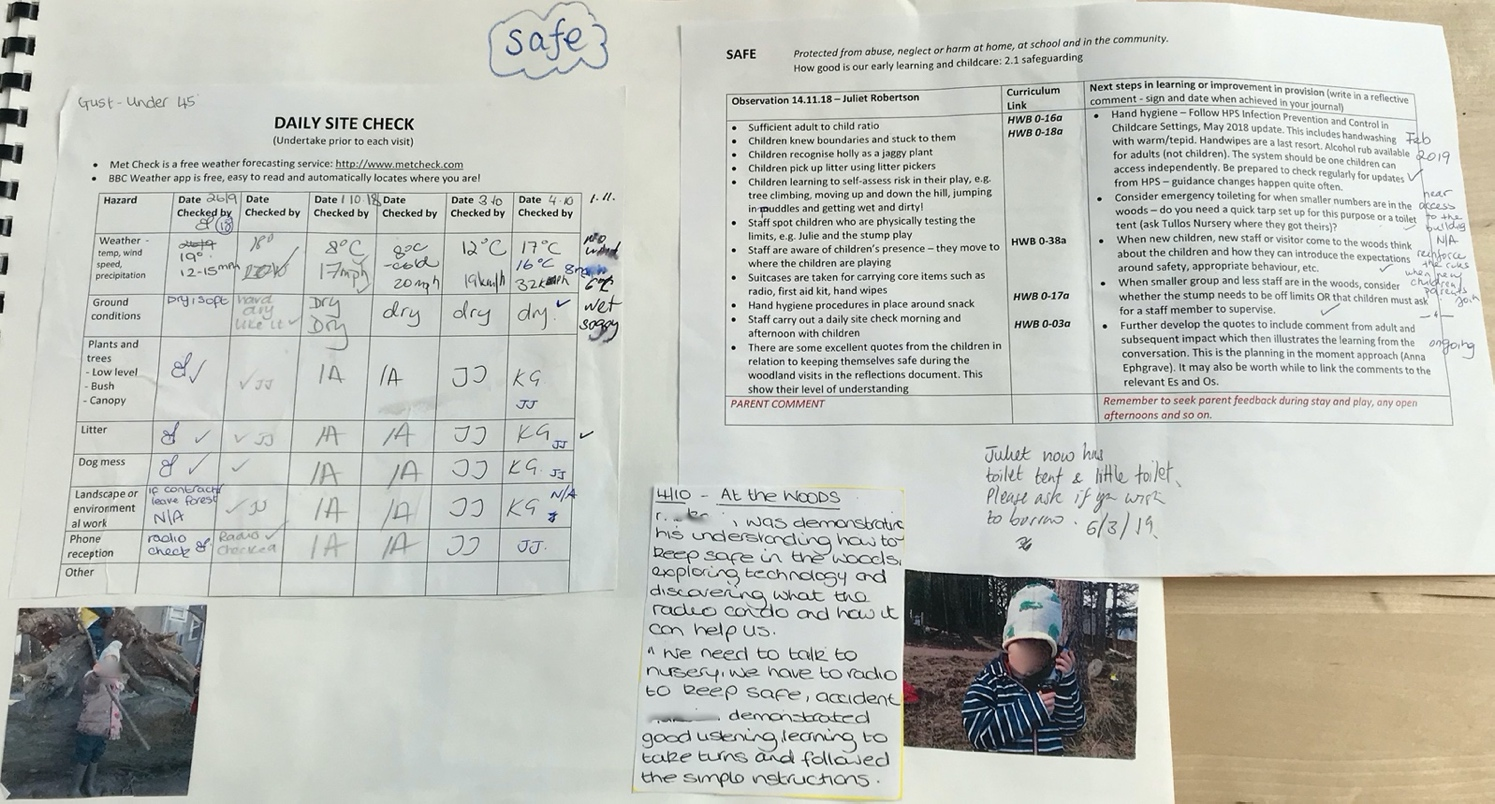 safe
Gust - Under 45
DAILY SITE CHECK
(Undertake prior to each visit)
• Met Check is a free weather forecasting service: http://www.metcheck.com
• BBC Weather app is free, easy to read and automatically locates where you are!
Hazard Date 26/9 Date Date 1 10 18 Date Date 3/10 Date 4.10 1.11.
Checked by Checked by Checked by Checked by Checked by Checked by
Weather - temp, wind speed, precipitation
19° 18° 8°C 8°C 12°C 17°C no wind
12-15mph 17mph -cold 20mph 19km/h 16°C 32kmph
Ground conditions
Dry, soft hard dry like it ✓ Dry Dry dry dry dry. ✓ wet soggy
Plants and trees
- Low level
- Bush
- Canopy
✓ ✓ JJ IA IA JJ KG JJ
Litter ✓ ✓ JJ IA IA JJ KG JJ ✓
Dog mess ✓ ✓ IA IA JJ KG. JJ
Landscape or environment al work
if contracts leave forest N/A ✓ JJ IA IA JJ KG N/A
Phone reception
radio check Radio ✓ checked IA IA JJ JJ.
Other
SAFE Protected from abuse, neglect or harm at home, at school and in the community.
How good is our early learning and childcare: 2.1 safeguarding
Observation 14.11.18 – Juliet Robertson
• Sufficient adult to child ratio
• Children knew boundaries and stuck to them
• Children recognise holly as a jaggy plant
• Children pick up litter using litter pickers
• Children learning to self-assess risk in their play, e.g.
tree climbing, moving up and down the hill, jumping
in puddles and getting wet and dirty!
• Staff spot children who are physically testing the
limits, e.g. Julie and the stump play
• Staff are aware of children's presence – they move to
where the children are playing
• Suitcases are taken for carrying core items such as
radio, first aid kit, hand wipes
• Hand hygiene procedures in place around snack
• Staff carry out a daily site check morning and
afternoon with children
• There are some excellent quotes from the children in
relation to keeping themselves safe during the
woodland visits in the reflections document. This
show their level of understanding
PARENT COMMENT
Curriculum
Link
HWB 0-16a
HWB 0-18a
HWB 0-38a
HWB 0-17a
HWB 0-03a
Next steps in learning or improvement in provision (write in a reflective
comment - sign and date when achieved in your journal)
• Hand hygiene – Follow HPS Infection Prevention and Control in
Childcare Settings, May 2018 update. This includes handwashing
with warm/tepid. Handwipes are a last resort. Alcohol rub available
for adults (not children). The system should be one children can
access independently. Be prepared to check regularly for updates
from HPS – guidance changes happen quite often.
• Consider emergency toileting for when smaller numbers are in the
woods – do you need a quick tarp set up for this purpose or a toilet
tent (ask Tullos Nursery where they got theirs)?
• When new children, new staff or visitor come to the woods think
about the children and how they can introduce the expectations
around safety, appropriate behaviour, etc.
• When smaller group and less staff are in the woods, consider
whether the stump needs to be off limits OR that children must ask
for a staff member to supervise.
• Further develop the quotes to include comment from adult and
subsequent impact which then illustrates the learning from the
conversation. This is the planning in the moment approach (Anna
Ephgrave). It may also be worth while to link the comments to the
relevant Es and Os.
Remember to seek parent feedback during stay and play, any open
afternoons and so on.
Feb
2019
✓
near
access
to the
building
N/A
reinforce
the rules
when new
children
parents
join
ongoing
Juliet now has
toilet tent & little toilet.
Please ask if you wish
to borrow. 6/3/19.
4/10 - At the WOODS
, was demonstrating
his understanding how to
keep safe in the woods,
exploring technology and
discovering what the
radio can do and how it
can help us.
" We need to talk to
nursery, we have to radio
to keep safe, accident
demonstrated
good listening, learning to
take turns and followed
the simple instructions.